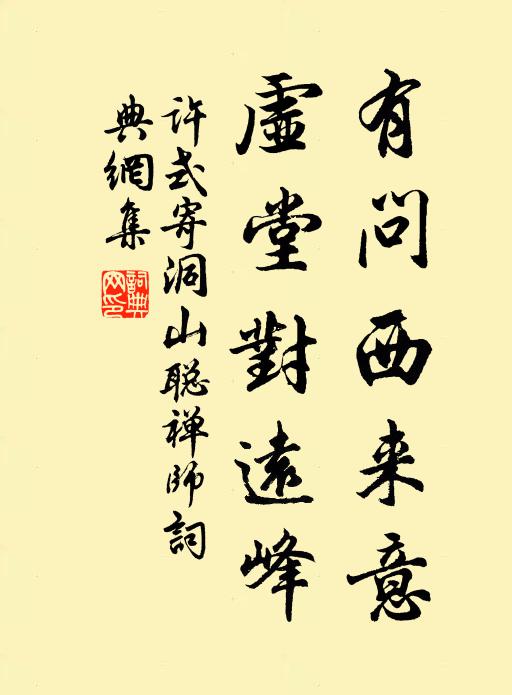 有问西来意
虚堂對遠峰
许式寄洞山聪禅师詞
典網集
詞典网印